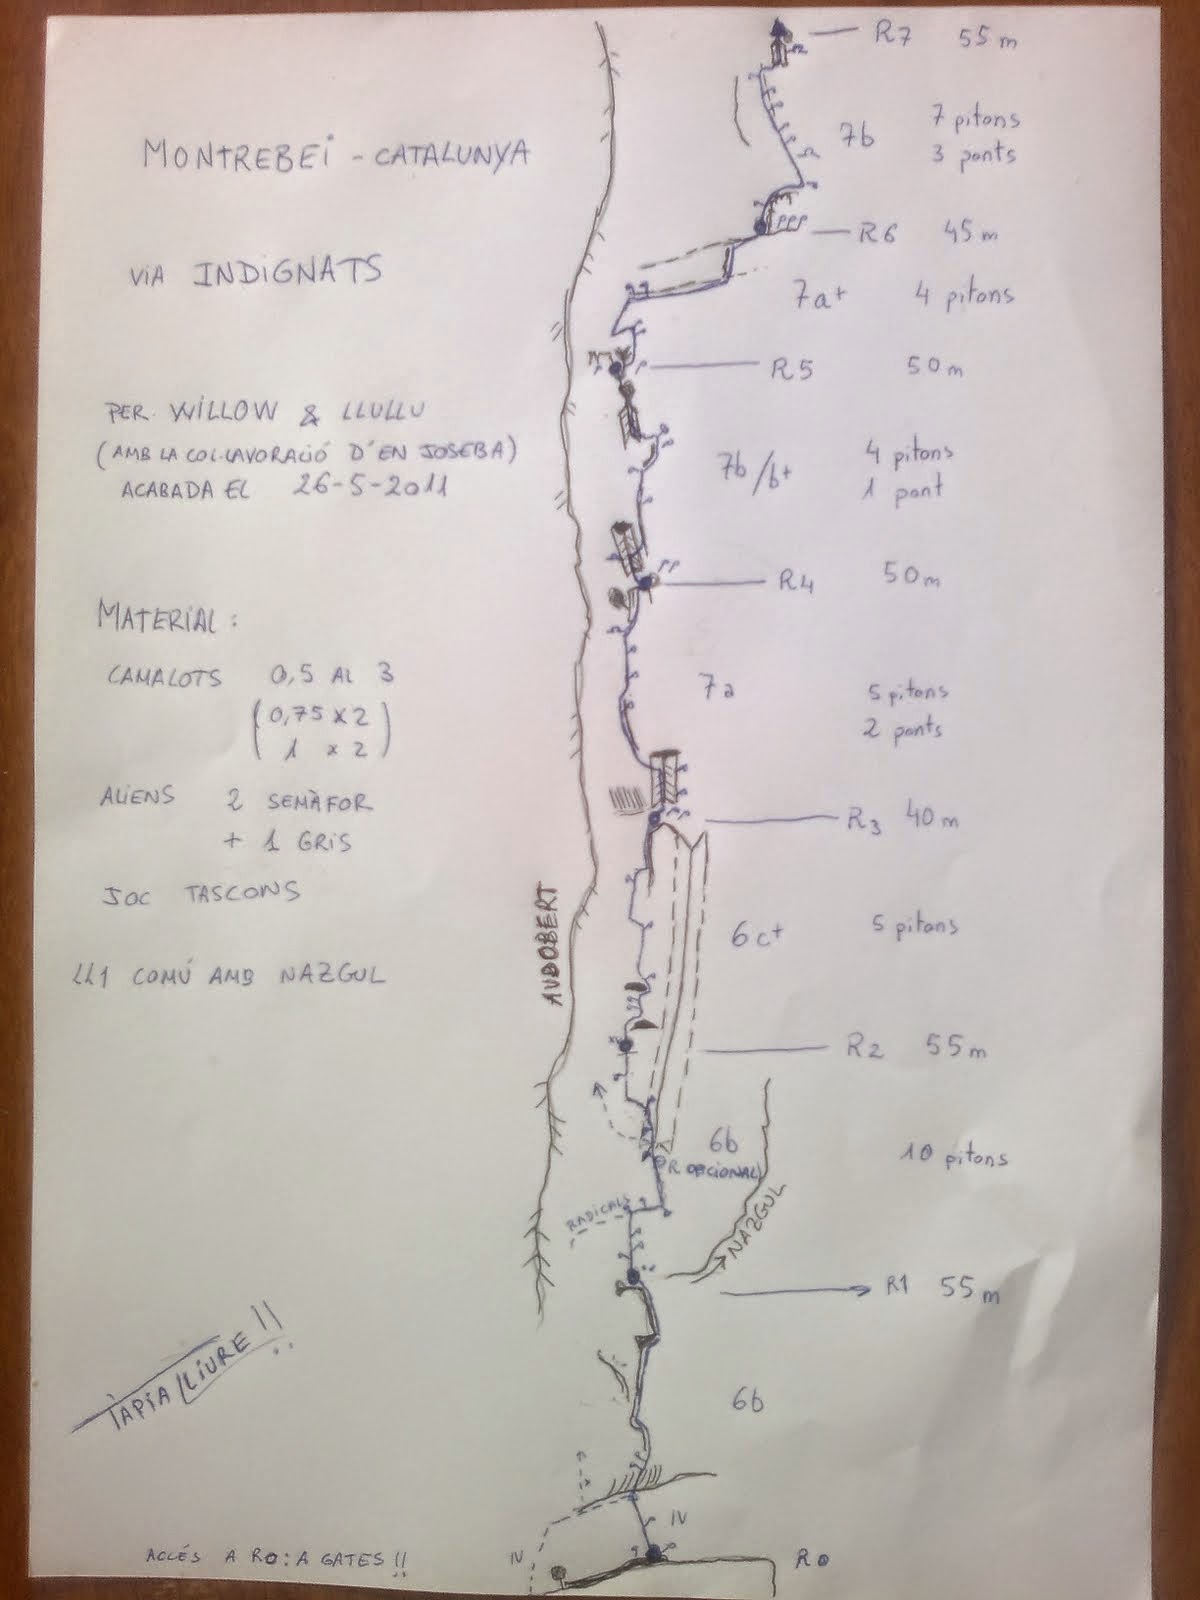 R7 55m
MONTREBEI - CATALUNYA
7b 7 pitons
3 ponts
R6 45m
VIA INDIGNATS
7a+ 4 pitons
R5 50m
PER WILLOW & LLULLU
(AMB LA COL·LAVORACIÓ D'EN JOSEBA)
ACABADA EL 26-5-2011
7b/b+ 4 pitons
1 pont
R4 50m
MATERIAL:
CAMALOTS 0,5 AL 3
(0,75 x 2
1 x 2)
7a 5 pitons
2 ponts
ALIENS 2 SEMÀFOR
+ 1 GRIS
R3 40m
JOC TASCONS
AUDOBERT
6c+ 5 pitons
LL1 COMÚ AMB NAZGUL
R2 55m
6b 10 pitons
(R OPCIONAL)
RADICALS
NAZGUL
R1 55m
TAPIA LLIURE!!
6b
IV
IV
ACCÉS A R0: A GATES!!
R0